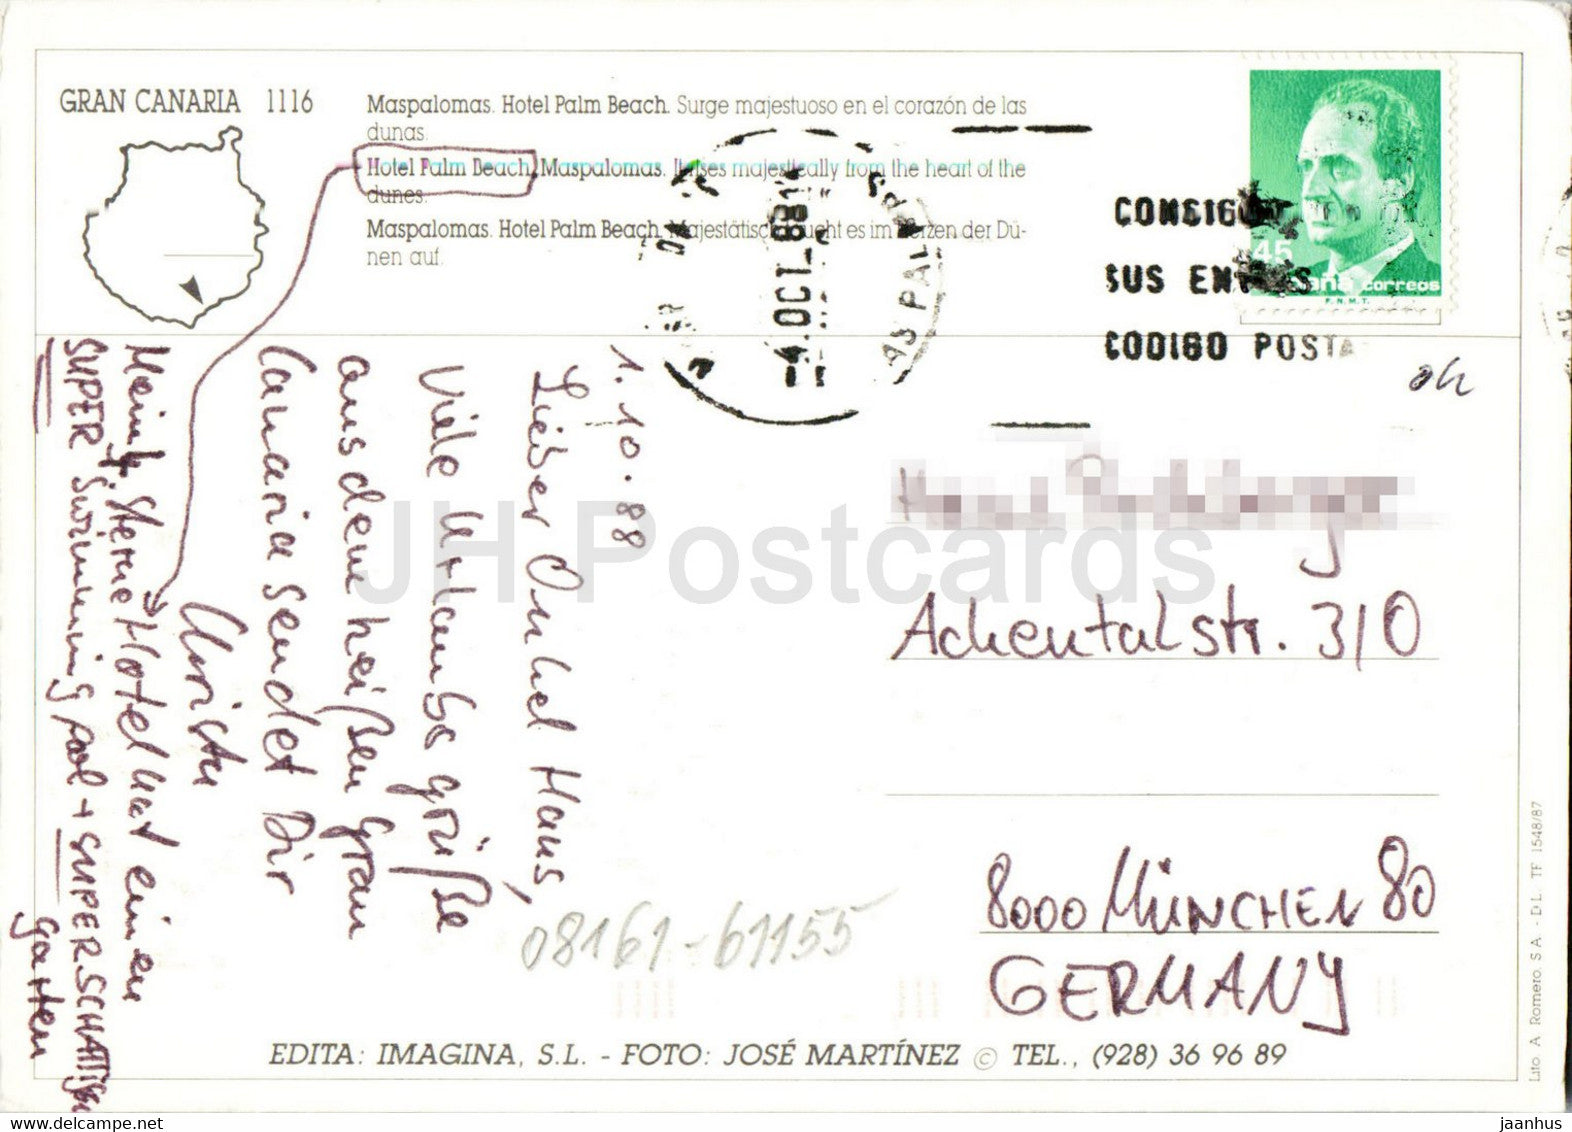 GRAN CANARIA 1116
Maspalomas. Hotel Palm Beach. Surge majestuoso en el corazón de las
dunas.
Hotel Palm Beach, Maspalomas. It rises majestically from the heart of the
dunes.
Maspalomas. Hotel Palm Beach. Majestätisch taucht es im Herzen der Dü-
nen auf.
-4.OCT.88
AS PAL
CONSIG
SUS EN
CODIGO POSTA
45
España correos
F.N.M.T.
1.10.88
Lieber Onkel Hans,
Viele Urlaubsgrüße
aus dem heißen Gran
Canaria sendet Dir
Mein 4 Sterne Hotel hat einen
SUPER Swimming pool + SUPER SCHATTIGEN
garten
Achentalstr. 3/0
8000 MÜNCHEN 80
GERMANY
08161-61155
JH Postcards
EDITA: IMAGINA, S.L. - FOTO: JOSÉ MARTÍNEZ © TEL., (928) 36 96 89
Lito A Romero, S A - D L. TF 1548/87
www.delcampe.net
jaanhus